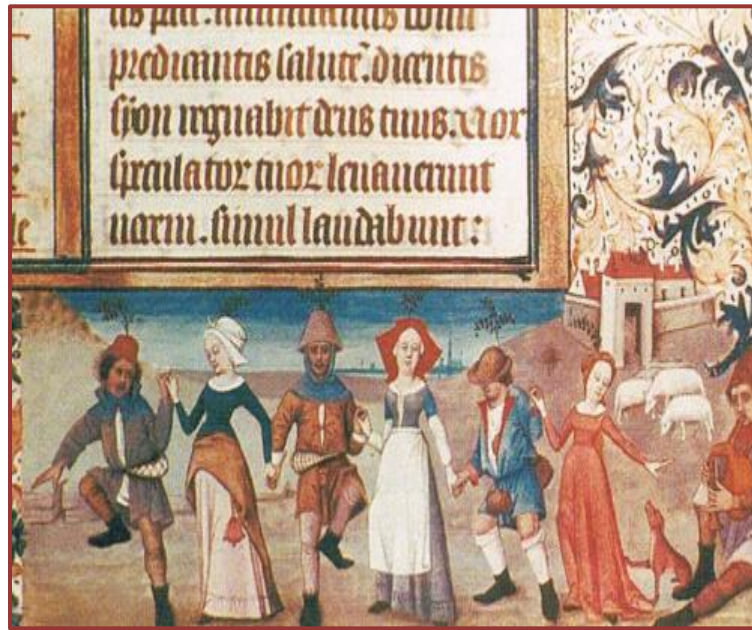 predicantis salutē. dicentis
syon regnabit deus tuus. Vox
speculator tuor leuauerunt
uocem. simul laudabunt: